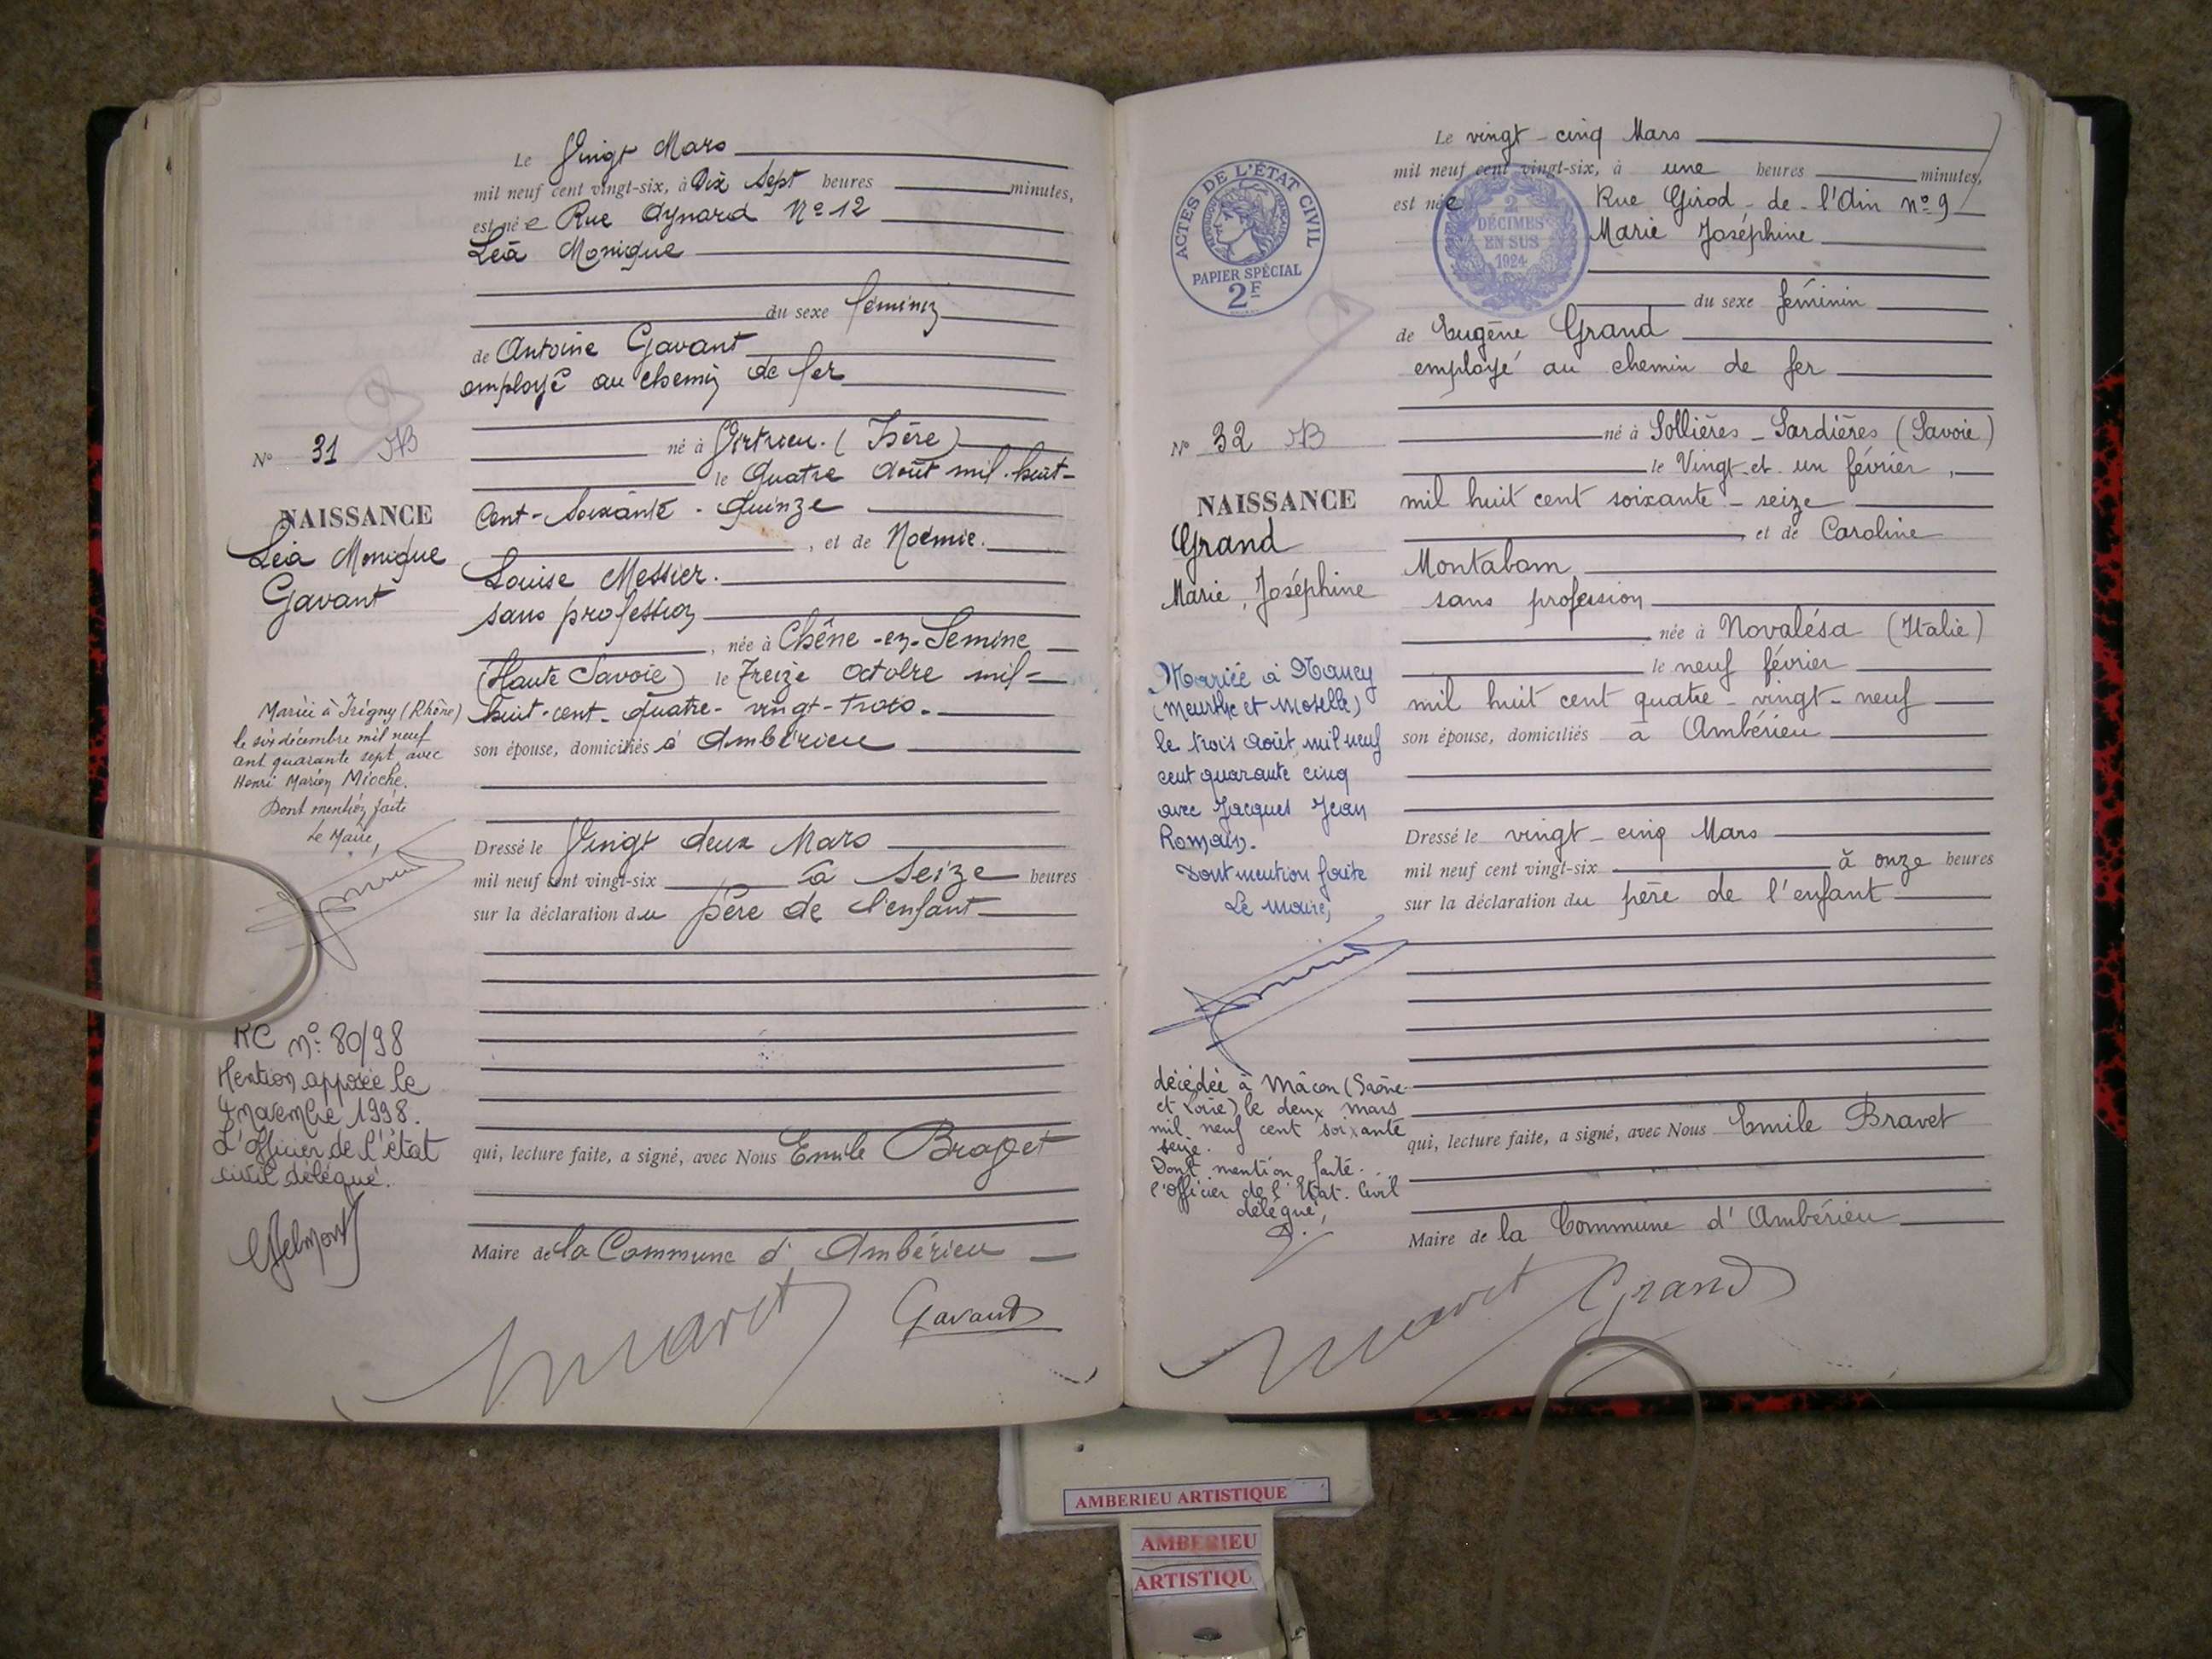 Le Vingt Mars
mil neuf cent vingt-six, à Dix Sept heures minutes,
est née Rue Aynard Nº 12
Léa Monique
du sexe féminin
de Antoine Gavant
employé au chemin de fer
né à Vertrieu. (Isère)
le Quatre Août mil-huit-
Cent-Soixante-Quinze
, et de Noémie.
Louise Messier.
sans profession
, née à Chêne-en-Semine
(Haute Savoie) le Treize Octobre mil-
huit-cent-quatre-vingt-trois.
son épouse, domiciliés à Ambérieu
Dressé le Vingt deux Mars
mil neuf cent vingt-six à Seize heures
sur la déclaration du père de l'enfant
qui, lecture faite, a signé, avec Nous Emile Bravet
Maire de la Commune d'Ambérieu
Gavant
Nº 31
NAISSANCE
Léa Monique
Gavant
Mariée à Irigny (Rhône)
le six décembre mil neuf
cent quarante sept avec
Henri Marien Mioche.
Dont mention faite
Le Maire,
RC nº: 80/98
Mention apposée le
4 novembre 1998.
L'officier de l'état
civil délégué.
ACTES DE L'ÉTAT CIVIL
RÉPUBLIQUE FRANÇAISE
PAPIER SPÉCIAL
2F
2
DÉCIMES
EN SUS
1924
Le vingt-cinq Mars
mil neuf cent vingt-six, à une heures minutes,
est née Rue Girod-de-l'Ain nº 9
Marie Joséphine
du sexe féminin
de Eugène Grand
employé au chemin de fer
né à Sollières-Sardières (Savoie)
le Vingt-et-un février,
mil huit cent soixante-seize
, et de Caroline
Montabom
sans profession
née à Novalésa (Italie)
le neuf février
mil huit cent quatre-vingt-neuf
son épouse, domiciliés à Ambérieu
Dressé le vingt-cinq Mars
mil neuf cent vingt-six à onze heures
sur la déclaration du père de l'enfant
qui, lecture faite, a signé, avec Nous Emile Bravet
Maire de la Commune d'Ambérieu
Grand
Nº 32
NAISSANCE
Grand
Marie, Joséphine
Mariée à Nancy
(Meurthe et Moselle)
le trois août mil neuf
cent quarante cinq
avec Jacques Jean
Romain.
Dont mention faite
Le maire,
décédée à Mâcon (Saône-
et Loire) le deux mars
mil neuf cent soixante
seize.
Dont mention faite.
l'Officier de l'Etat-Civil
délégué,
AMBERIEU ARTISTIQUE
AMBERIEU
ARTISTIQU